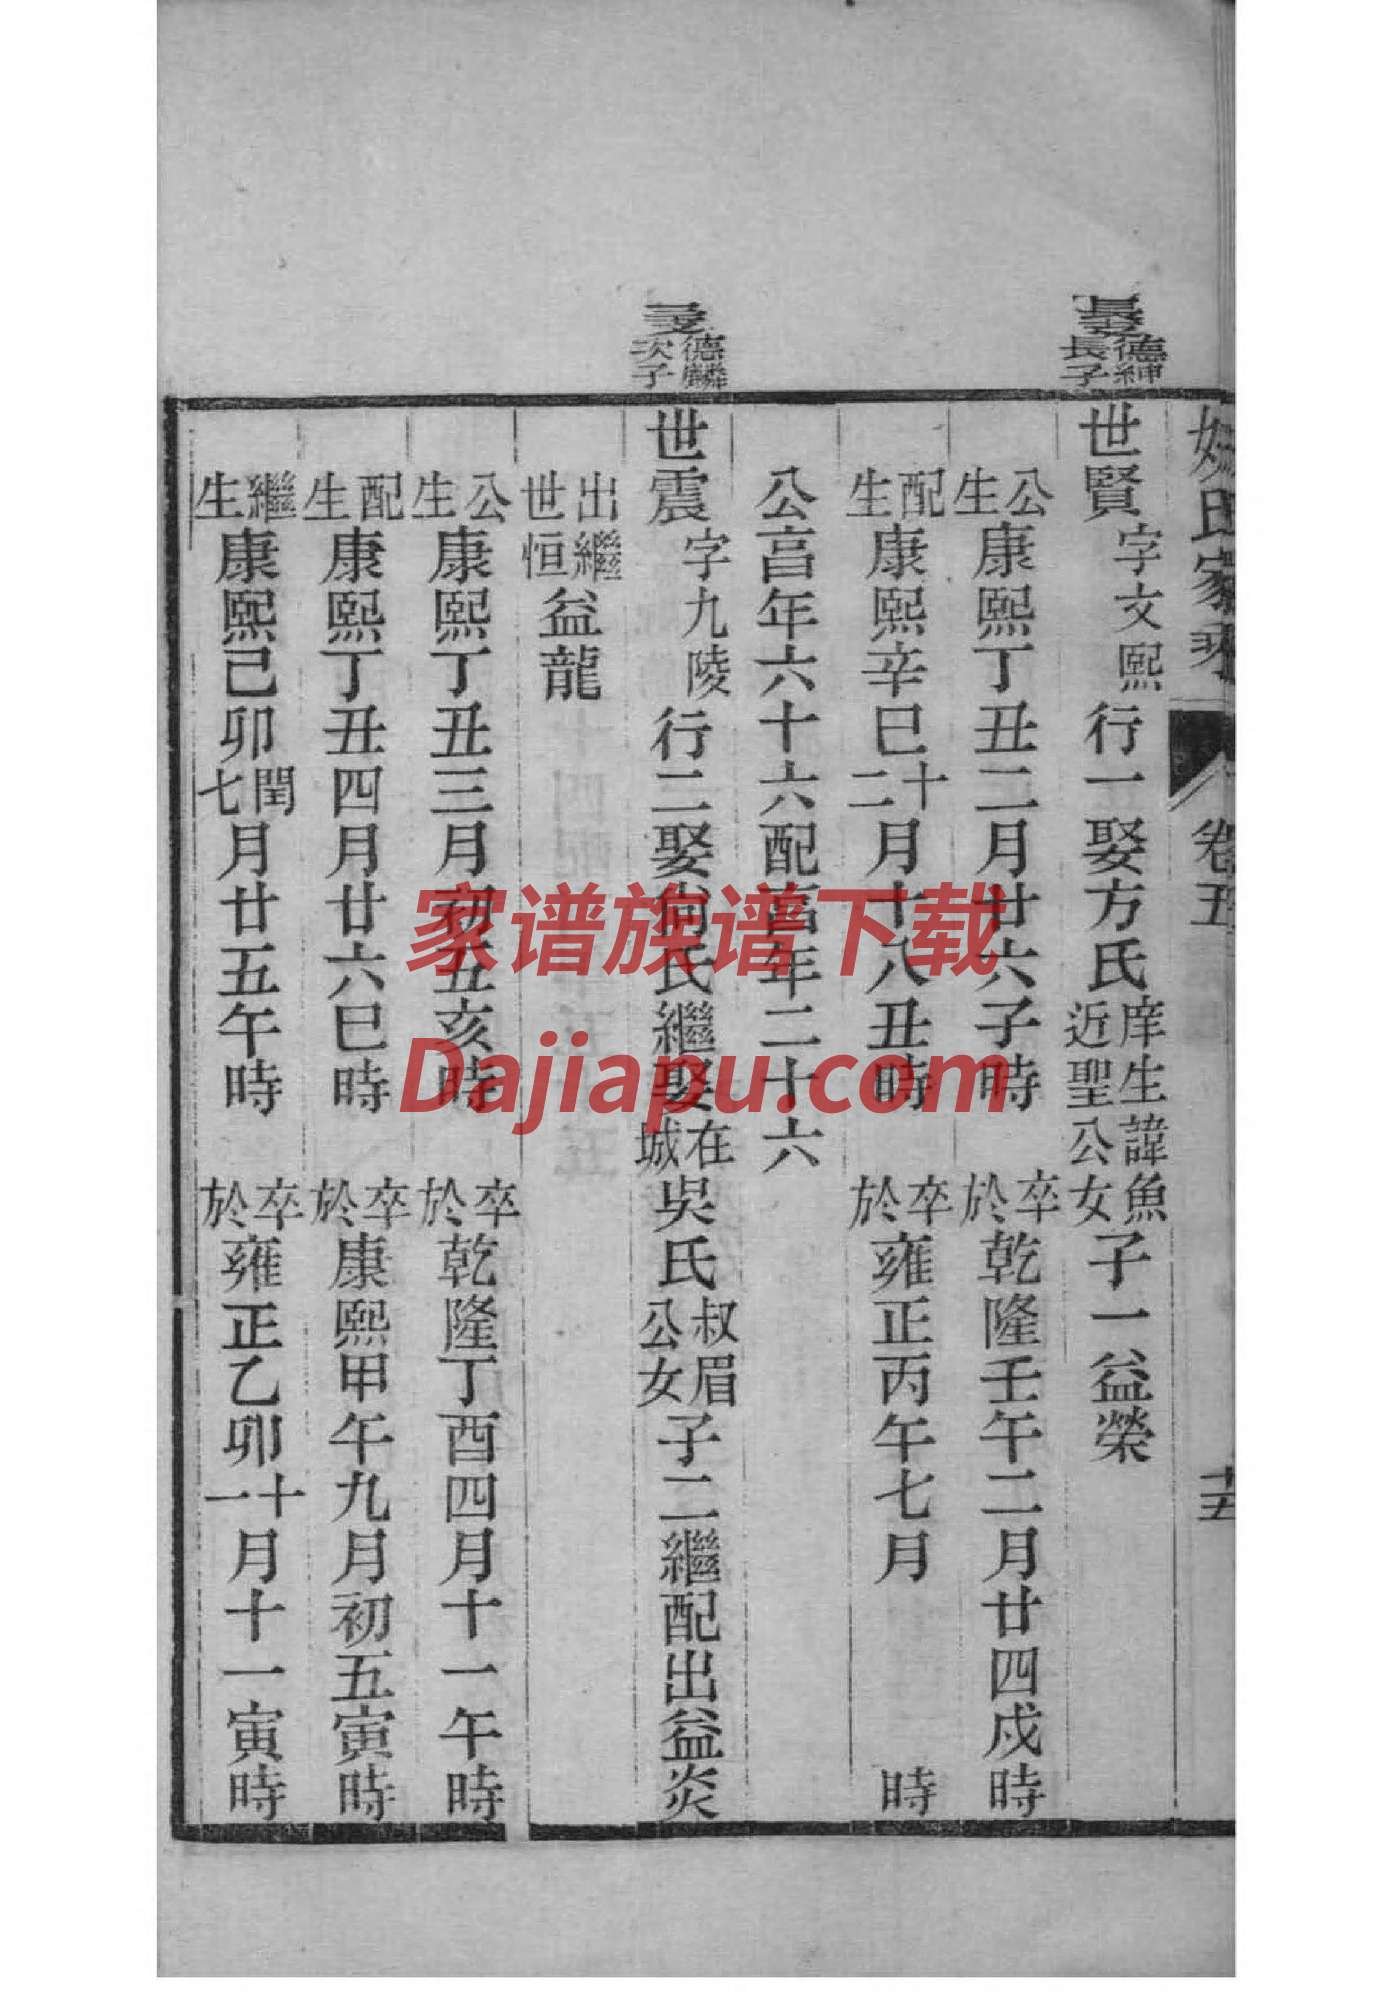 氏家乘 卷五 十五
長支德紳長子
世賢字文熙行一娶方氏庠生諱魚近聖公女子一益榮
公生康熙丁丑二月廿六子時 卒於乾隆壬午二月廿四戌時
配生康熙辛巳十二月十八丑時 卒於雍正丙午七月 時
公亯年六十六配亯年二十六
支德麟次子
世震字九陵行二娶氏繼娶在城吳氏叔眉公女子二繼配出益炎
出繼世恒益龍
公生康熙丁丑三月初五亥時 卒於乾隆丁酉四月十一午時
配生康熙丁丑四月廿六巳時 卒於康熙甲午九月初五寅時
繼生康熙己卯閏七月廿五午時 卒於雍正乙卯十一月十一寅時
家谱族谱下载
Dajiapu.com